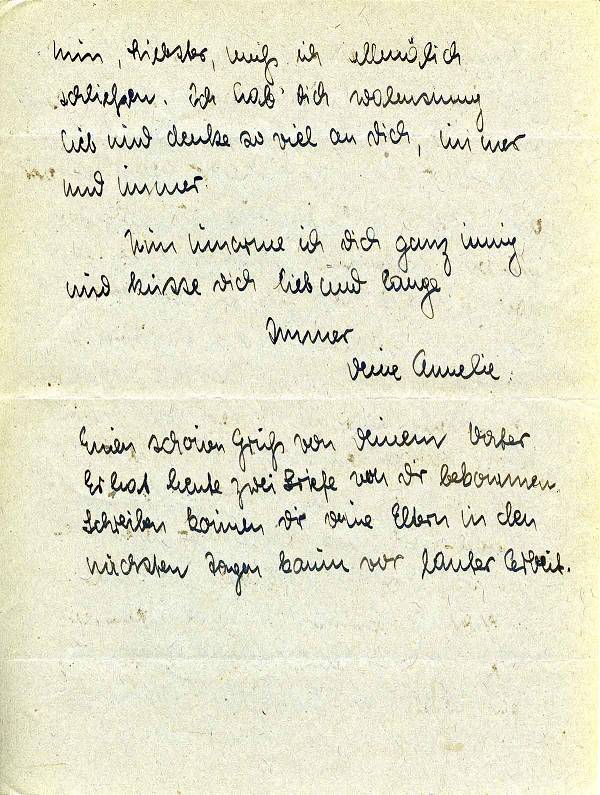 Nun, Liebster, muß ich allmählich
schließen. Ich hab' dich wahnsinnig
lieb und denke so viel an dich, immer
und immer.
Nun umarme ich dich ganz innig
und küsse dich lieb und lange
Immer
deine Annelie.
Einen schönen Gruß von deinem Vater
Er hat heute zwei Briefe von dir bekommen.
Schreiben können dir deine Eltern in den
nächsten Tagen kaum vor lauter Arbeit.